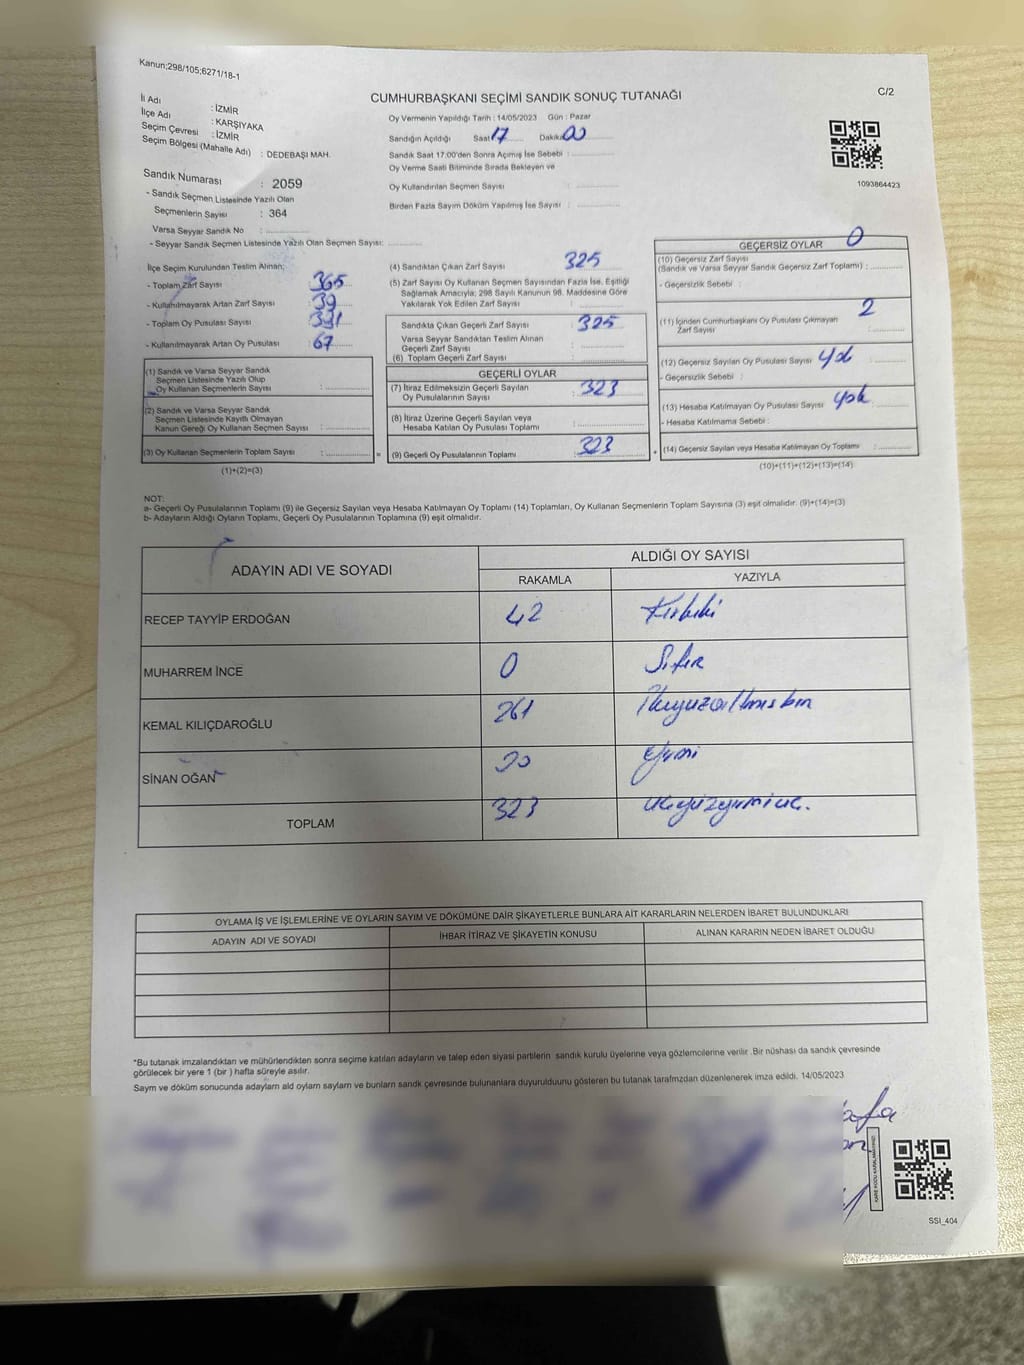 Kanun;298/105;6271/18-1
C/2
CUMHURBAŞKANI SEÇİMİ SANDIK SONUÇ TUTANAĞI
İl Adı : İZMİR
İlçe Adı : KARŞIYAKA
Seçim Çevresi : İZMİR
Seçim Bölgesi (Mahalle Adı) : DEDEBAŞI MAH.
Sandık Numarası : 2059
- Sandık Seçmen Listesinde Yazılı Olan
Seçmenlerin Sayısı : 364
Varsa Seyyar Sandık No :
- Seyyar Sandık Seçmen Listesinde Yazılı Olan Seçmen Sayısı:
Oy Vermenin Yapıldığı Tarih : 14/05/2023 Gün : Pazar
Sandığın Açıldığı Saat 17 Dakika 00
Sandık Saat 17:00'den Sonra Açımış İse Sebebi :
Oy Verme Saati Bitiminde Sırada Bekleyen ve
Oy Kullandırılan Seçmen Sayısı :
Birden Fazla Sayım Döküm Yapılmış İse Sayısı :
1093864423
İlçe Seçim Kurulundan Teslim Alınan;
- Toplam Zarf Sayısı : 365
- Kullanılmayarak Artan Zarf Sayısı : 39
- Toplam Oy Pusulası Sayısı :
- Kullanılmayarak Artan Oy Pusulası : 67
(1) Sandık ve Varsa Seyyar Sandık
Seçmen Listesinde Yazılı Olup
Oy Kullanan Seçmenlerin Sayısı :
(2) Sandık ve Varsa Seyyar Sandık
Seçmen Listesinde Kayıtlı Olmayan
Kanun Gereği Oy Kullanan Seçmen Sayısı :
(3) Oy Kullanan Seçmenlerin Toplam Sayısı : =
(1)+(2)=(3)
(4) Sandıktan Çıkan Zarf Sayısı : 325
(5) Zarf Sayısı Oy Kullanan Seçmen Sayısından Fazla İse, Eşitliği
Sağlamak Amacıyla; 298 Sayılı Kanunun 98. Maddesine Göre
Yakılarak Yok Edilen Zarf Sayısı :
Sandıkta Çıkan Geçerli Zarf Sayısı : 325
Varsa Seyyar Sandıktan Teslim Alınan
Geçerli Zarf Sayısı :
(6) Toplam Geçerli Zarf Sayısı :
GEÇERLİ OYLAR
(7) İtiraz Edilmeksizin Geçerli Sayılan
Oy Pusulalarının Sayısı : 323
(8) İtiraz Üzerine Geçerli Sayılan veya
Hesaba Katılan Oy Pusulası Toplamı :
(9) Geçerli Oy Pusulalarının Toplamı : 323 +
GEÇERSİZ OYLAR 0
(10) Geçersiz Zarf Sayısı
(Sandık ve Varsa Seyyar Sandık Geçersiz Zarf Toplamı) :
- Geçersizlik Sebebi :
(11) İçinden Cumhurbaşkanı Oy Pusulası Çıkmayan 2
Zarf Sayısı :
(12) Geçersiz Sayılan Oy Pusulası Sayısı : yok
- Geçersizlik Sebebi :
(13) Hesaba Katılmayan Oy Pusulası Sayısı : yok
- Hesaba Katılmama Sebebi :
(14) Geçersiz Sayılan veya Hesaba Katılmayan Oy Toplamı :
(10)+(11)+(12)+(13)=(14)
NOT:
a- Geçerli Oy Pusulalarının Toplamı (9) ile Geçersiz Sayılan veya Hesaba Katılmayan Oy Toplamı (14) Toplamları, Oy Kullanan Seçmenlerin Toplam Sayısına (3) eşit olmalıdır. (9)+(14)=(3)
b- Adayların Aldığı Oyların Toplamı, Geçerli Oy Pusulalarının Toplamına (9) eşit olmalıdır.
ADAYIN ADI VE SOYADI
ALDIĞI OY SAYISI
RAKAMLA YAZIYLA
RECEP TAYYİP ERDOĞAN 42 Kırkiki
MUHARREM İNCE 0 Sıfır
KEMAL KILIÇDAROĞLU 261 İkiyüzaltmışbir
SİNAN OĞAN 20 Yirmi
TOPLAM 323 üçyüzyirmiüç.
OYLAMA İŞ VE İŞLEMLERİNE VE OYLARIN SAYIM VE DÖKÜMÜNE DAİR ŞİKAYETLERLE BUNLARA AİT KARARLARIN NELERDEN İBARET BULUNDUKLARI
ADAYIN ADI VE SOYADI İHBAR İTİRAZ VE ŞİKAYETİN KONUSU ALINAN KARARIN NEDEN İBARET OLDUĞU
*Bu tutanak imzalandıktan ve mühürlendikten sonra seçime katılan adayların ve talep eden siyasi partilerin sandık kurulu üyelerine veya gözlemcilerine verilir .Bir nüshası da sandık çevresinde
görülecek bir yere 1 (bir ) hafta süreyle asılır.
Sayım ve döküm sonucunda adayların ald oyların sayların ve bunların sandık çevresinde bulunanlara duyurulduunu gösteren bu tutanak tarafmzdan düzenlenerek imza edildi. 14/05/2023
SSI_404